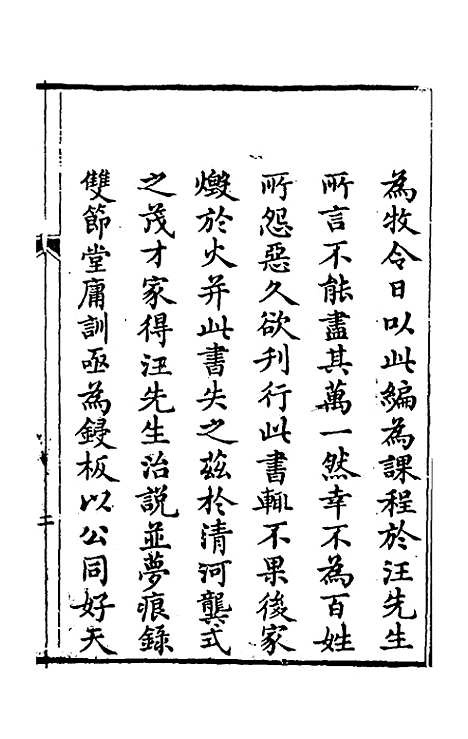 為牧令日以此編為課程於汪先生
所言不能盡其萬一然幸不為百姓
所怨惡久欲刋行此書輒不果後家
燬於火并此書失之茲於清河龔式
之茂才家得汪先生治說並夢痕錄
雙節堂庸訓亟為鋟板以公同好天
二